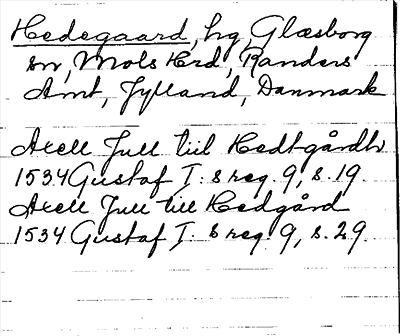 Hedegaard, hg, Glæsborg
sn, Mols Hrd, Randers
Amt, Jylland, Danmark
Axell Jull till Hedtgårdh
1534 Gustaf I:s reg. 9, s. 19.
Axell Jull till Hedgård
1534 Gustaf I:s reg. 9, s. 29.